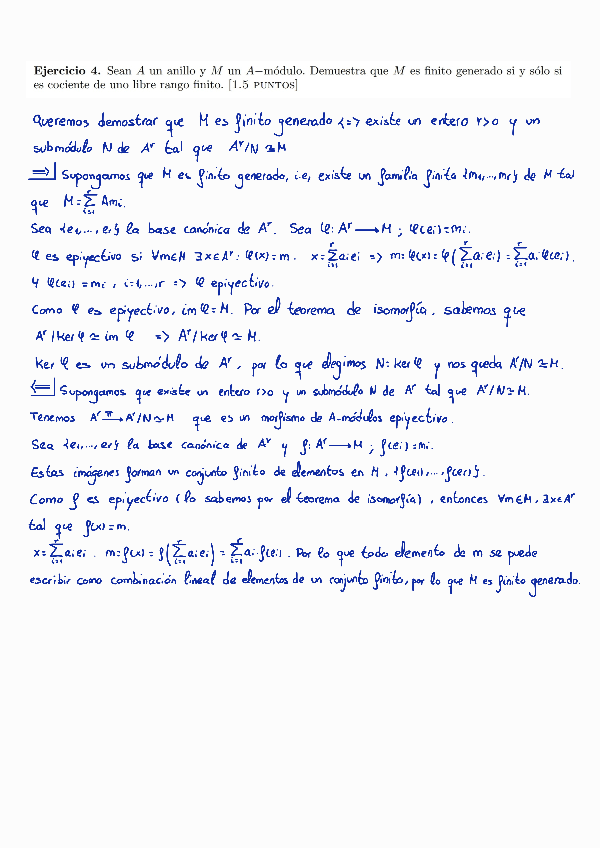 Ejercicio 4. Sean A un anillo y M un A−módulo. Demuestra que M es finito generado si y sólo si
es cociente de uno libre rango finito. [1.5 PUNTOS]
Queremos demostrar que M es finito generado <=> existe un entero r>0 y un
submódulo N de Aʳ tal que Aʳ/N ≃ M
=>| Supongamos que M es finito generado, i.e, existe un familia finita {m₁,...,mᵣ} de M tal
que M = ∑ᵢ₌₁ʳ Amᵢ.
Sea {e₁,...,eᵣ} la base canónica de Aʳ. Sea φ: Aʳ ⟶ M ; φ(eᵢ) = mᵢ.
φ es epiyectivo si ∀m∈M ∃x∈Aʳ : φ(x) = m. x = ∑ᵢ₌₁ʳ aᵢeᵢ => m = φ(x) = φ(∑ᵢ₌₁ʳ aᵢeᵢ) = ∑ᵢ₌₁ʳ aᵢ φ(eᵢ).
Y φ(eᵢ) = mᵢ , i=1,...,r => φ epiyectivo.
Como φ es epiyectivo, im φ = M. Por el teorema de isomorfía, sabemos que
Aʳ/Ker φ ≃ im φ => Aʳ/ker φ ≃ M.
Ker φ es un submódulo de Aʳ, por lo que elegimos N = Ker φ y nos queda Aʳ/N ≃ M.
<=| Supongamos que existe un entero r>0 y un submódulo N de Aʳ tal que Aʳ/N ≃ M.
Tenemos Aʳ –π→ Aʳ/N ≃ M que es un morfismo de A-módulos epiyectivo.
Sea {e₁,...,eᵣ} la base canónica de Aʳ y f: Aʳ ⟶ M ; f(eᵢ) = mᵢ.
Estas imágenes forman un conjunto finito de elementos en M, {f(e₁),...,f(eᵣ)}.
Como f es epiyectivo (lo sabemos por el teorema de isomorfía), entonces ∀m∈M, ∃x∈Aʳ
tal que f(x) = m.
x = ∑ᵢ₌₁ʳ aᵢeᵢ . m = f(x) = f(∑ᵢ₌₁ʳ aᵢeᵢ) = ∑ᵢ₌₁ʳ aᵢ f(eᵢ). Por lo que todo elemento de m se puede
escribir como combinación lineal de elementos de un conjunto finito, por lo que M es finito generado.